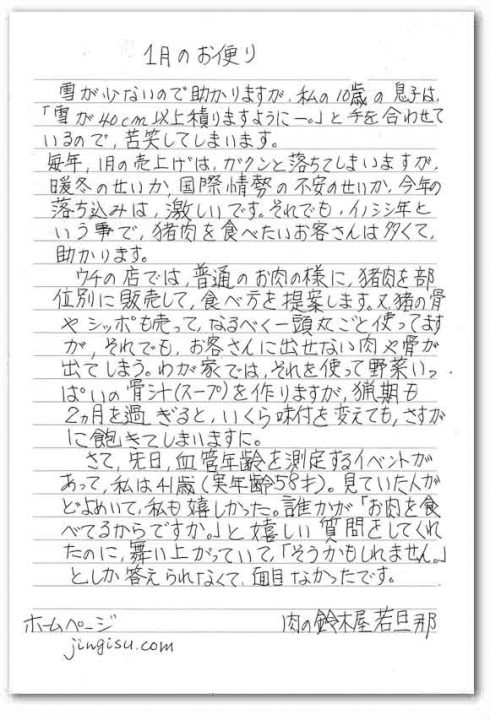 1月のお便り
雪が少ないので助かりますが、私の10歳の息子は、
「雪が40cm以上積りますようにー。」と手を合わせて
いるので、苦笑してしまいます。
毎年、1月の売上げは、ガクンと落ちてしまいますが、
暖冬のせいか、国際情勢の不安のせいか、今年の
落ち込みは、激しいです。それでも、イノシシ年と
いう事で、猪肉を食べたいお客さんは多くて、
助かります。
ウチの店では、普通のお肉の様に、猪肉を部
位別に販売して、食べ方を提案します。又、猪の骨
やシッポも売って、なるべく一頭丸ごと使ってます
が、それでも、お客さんに出せない肉や骨が
出てしまう。わが家では、それを使って野菜いっ
ぱいの骨汁(スープ)を作りますが、猟期も
2ヵ月を過ぎると、いくら味付を変えても、さすが
に飽きてしまいますに。
さて、先日、血管年齢を測定するイベントが
あって、私は41歳(実年齢58才)。見ていた人が
どよめいて、私も嬉しかった。誰かが「お肉を食
べてるからですか。」と嬉しい質問をしてくれ
たのに、舞い上がっていて、「そうかもしれません。」
としか答えられなくて、面目なかったです。
ホームページ 肉の鈴木屋若旦那
jingisu.com